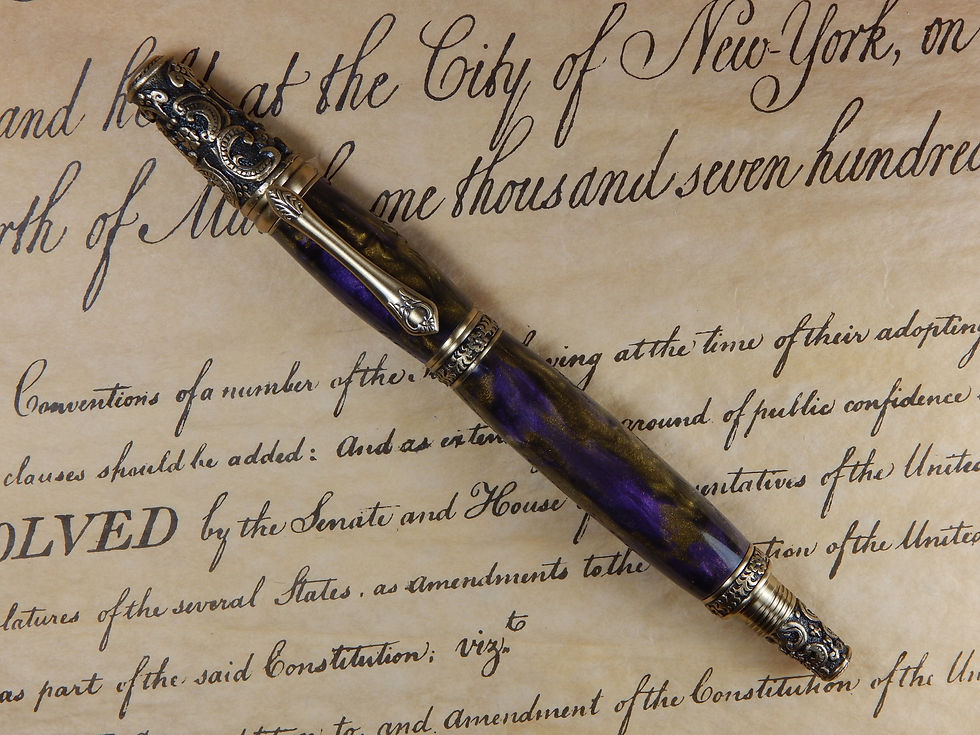 and at the City of New-York, on
of one thousand seven hundred
Conventions of a number of the at the time of their adopting
clauses should be added: And as exten ground of public confidence
OLVED by the Senate and House of entatives of the United
latures of the several States, as amendments to the tion of the United
as part of the said Constitution; vizt
to, and amendment of the Constitution of the Un